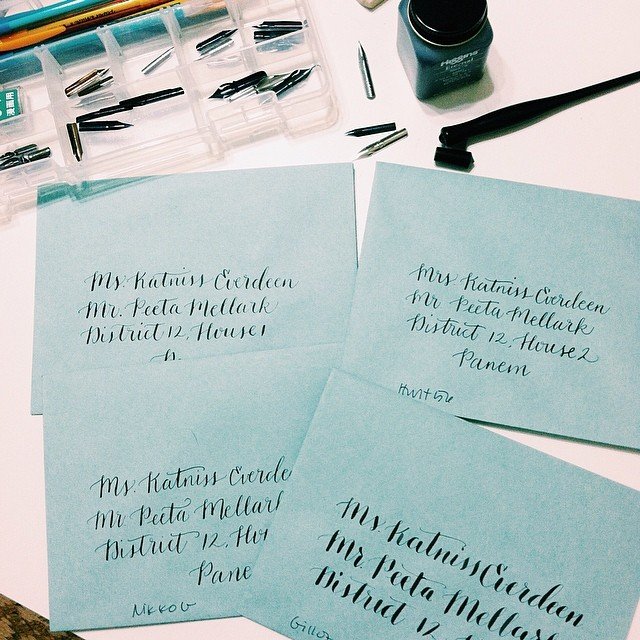 Higgins
Eternal
Ms. Katniss Everdeen
Mr. Peeta Mellark
District 12, House 1
Mrs Katniss Everdeen
Mr Peeta Mellark
District 12, House 2
Panem
Hunt 56
Ms. Katniss Everde
Mr. Peeta Mellark
District 12, Hou
Pane
Nikko G
Ms Katniss Everdeen
Mr Peeta Mellark
District 12, House
Gillot